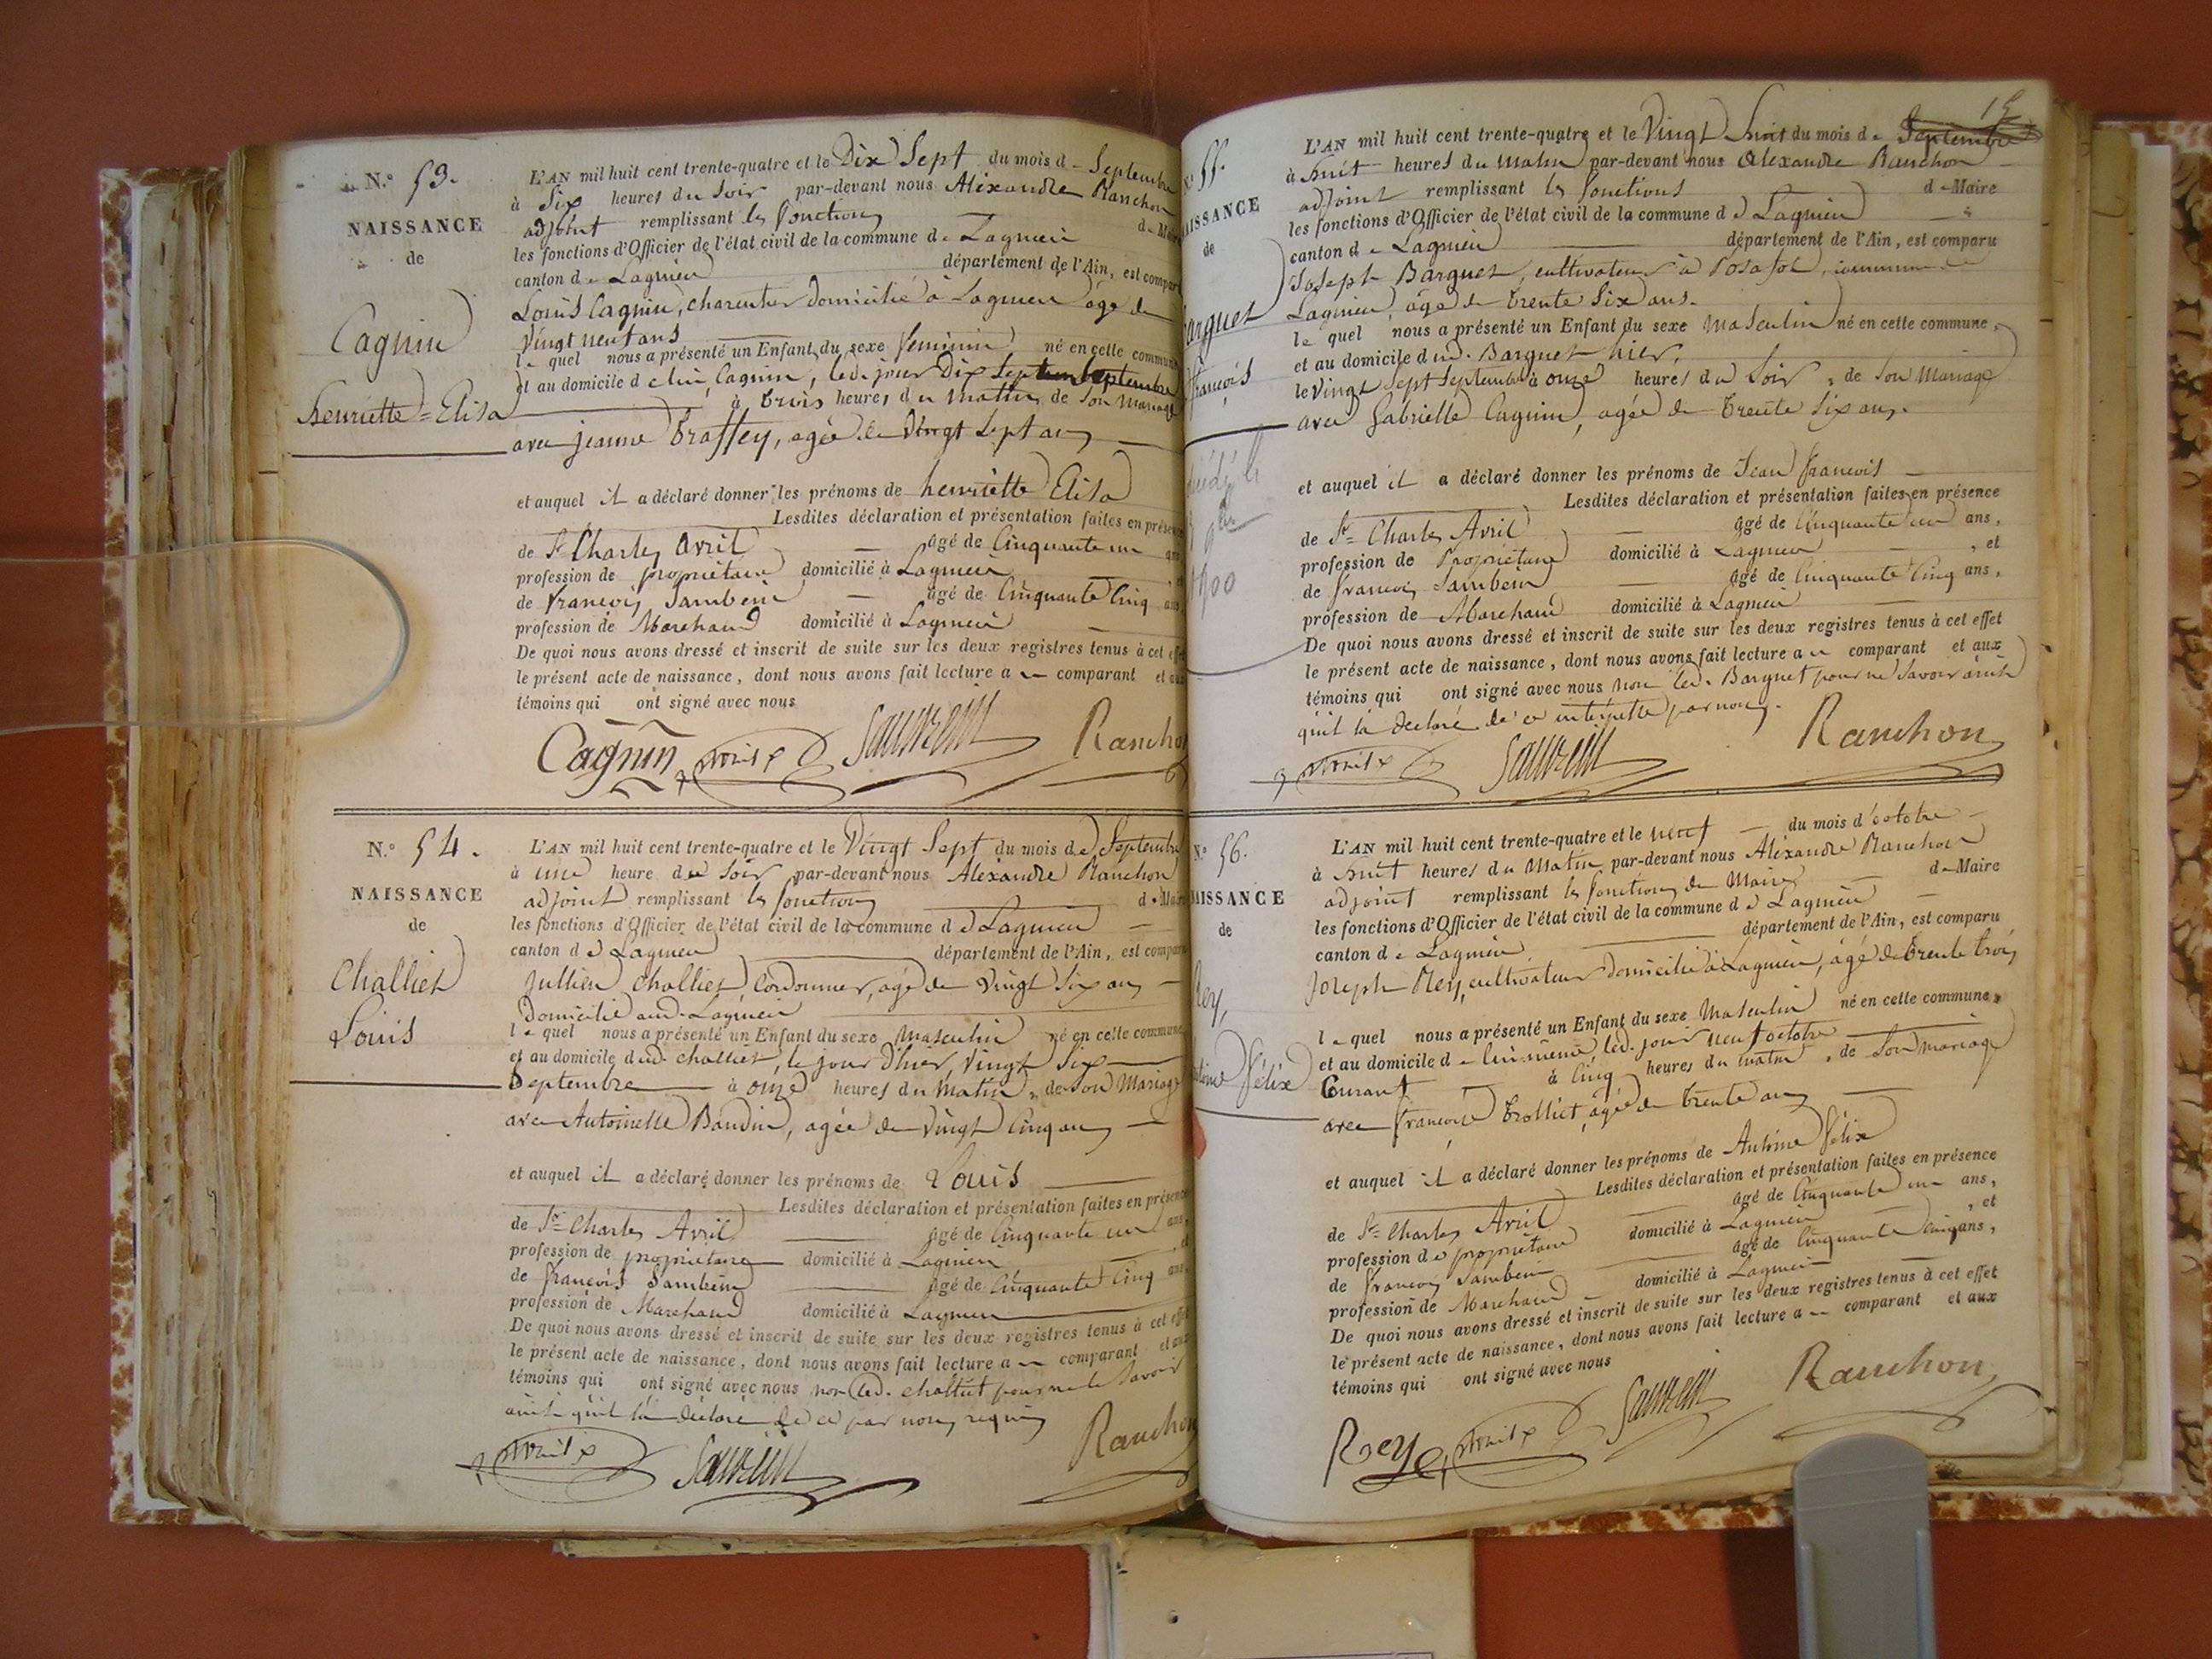 N.º 53.
NAISSANCE
de
Cagnin
henriette=Elisa
L'AN mil huit cent trente-quatre et le Dix Sept du mois de Septembre
à Six heures du Soir par-devant nous Alexandre Ranchon
adjoint remplissant les fonctions de Maire
les fonctions d'Officier de l'état civil de la commune de Lagnieu
canton de Lagnieu département de l'Ain, est comparu
Louis Cagnin, charpentier domicilié à Lagnieu âgé de
vingt neuf ans
le quel nous a présenté un Enfant du sexe feminin né en cette commune
et au domicile de lui Cagnin, led. jour Dix Sept Septembre
à trois heures du matin de Son mariage
avec jeanne traffey, agée de vingt Sept ans
et auquel il a déclaré donner les prénoms de henriette Elisa
Lesdites déclaration et présentation faites en présence
de Sr Charles Avril âgé de Cinquante un ans
profession de propriétaire domicilié à Lagnieu et
de francois Sambein âgé de Cinquante Cinq ans
profession de Marchand domicilié à Lagnieu
De quoi nous avons dressé et inscrit de suite sur les deux registres tenus à cet effet
le présent acte de naissance, dont nous avons fait lecture au comparant et aux
témoins qui ont signé avec nous
Cagnin Avril Ranchon
N.º 54.
NAISSANCE
de
Challiet
Louis
L'AN mil huit cent trente-quatre et le Vingt Sept du mois de Septembre
à une heure du Soir par-devant nous Alexandre Ranchon
adjoint remplissant les fonctions de Maire
les fonctions d'Officier de l'état civil de la commune de Lagnieu
canton de Lagnieu département de l'Ain, est comparu
Jullien Challiet, Cordonnier, agé de vingt Six ans
Domicilié aud. Lagnieu
le quel nous a présenté un Enfant du sexe masculin né en cette commune
et au domicile dud. challiet, le jour D'hier, vingt Six
Septembre à onze heures du matin, de Son Mariage
avec Antoinette Baudin, agée de vingt Cinq ans
et auquel il a déclaré donner les prénoms de Louis
Lesdites déclaration et présentation faites en présence
de Sr Charles Avril âgé de Cinquante un ans,
profession de propriétaire domicilié à Lagnieu et
de françois Sambein âgé de Cinquante Cinq ans
profession de Marchand domicilié à Lagnieu
De quoi nous avons dressé et inscrit de suite sur les deux registres tenus à cet effet
le présent acte de naissance, dont nous avons fait lecture au comparant et aux
témoins qui ont signé avec nous non led. challiet pour ne le Savoir
ainsi qu'il l'a déclaré de ce par nous requis
Avril Ranchon
15
N.º 55.
NAISSANCE
de
Barguet
françois
1900
L'AN mil huit cent trente-quatre et le Vingt huit du mois de Septembre
à huit heures du Matin par-devant nous Alexandre Ranchon
adjoint remplissant les fonctions de Maire
les fonctions d'Officier de l'état civil de la commune de Lagnieu
canton de Lagnieu département de l'Ain, est comparu
Joseph Barguet, cultivateur à Posafol, commune de
Lagnieu, âgé de trente Six ans.
le quel nous a présenté un Enfant du sexe masculin né en cette commune,
et au domicile dud. Barguet hier,
le vingt Sept Septembre à onze heures du Soir, de Son Mariage
avec Gabrielle Cagnin, agée de trente Six ans.
et auquel il a déclaré donner les prénoms de Jean françois
Lesdites déclaration et présentation faites en présence
de Sr Charles Avril âgé de Cinquante un ans,
profession de Propriétaire domicilié à Lagnieu, et
de francois Sambein âgé de Cinquante Cinq ans,
profession de Marchand domicilié à Lagnieu
De quoi nous avons dressé et inscrit de suite sur les deux registres tenus à cet effet
le présent acte de naissance, dont nous avons fait lecture au comparant et aux
témoins qui ont signé avec nous non led. Barguet pour ne Savoir ainsi
qu'il l'a déclaré de ce interpellé par nous.
Avril Ranchon
N.º 56.
NAISSANCE
de
Rey,
Antoine Félix
L'AN mil huit cent trente-quatre et le neuf du mois d'octobre
à huit heures du Matin par-devant nous Alexandre Ranchon
adjoint remplissant les fonctions de Maire de Maire
les fonctions d'Officier de l'état civil de la commune de Lagnieu
canton de Lagnieu département de l'Ain, est comparu
Joseph Rey, cultivateur domicilié à Lagnieu, âgé de trente trois
le quel nous a présenté un Enfant du sexe Masculin né en cette commune,
et au domicile de lui même, led. jour neuf octobre
Courant à Cinq heures du matin, de Son mariage
avec francoise trolliet, agée de trente ans
et auquel il a déclaré donner les prénoms de Antoine félix
Lesdites déclaration et présentation faites en présence
de Sr Charles Avril âgé de Cinquante un ans,
profession de propriétaire domicilié à Lagnieu, et
de francois Sambein âgé de Cinquante Cinq ans,
profession de Marchand domicilié à Lagnieu
De quoi nous avons dressé et inscrit de suite sur les deux registres tenus à cet effet
le présent acte de naissance, dont nous avons fait lecture au comparant et aux
témoins qui ont signé avec nous
Rey Avril Ranchon